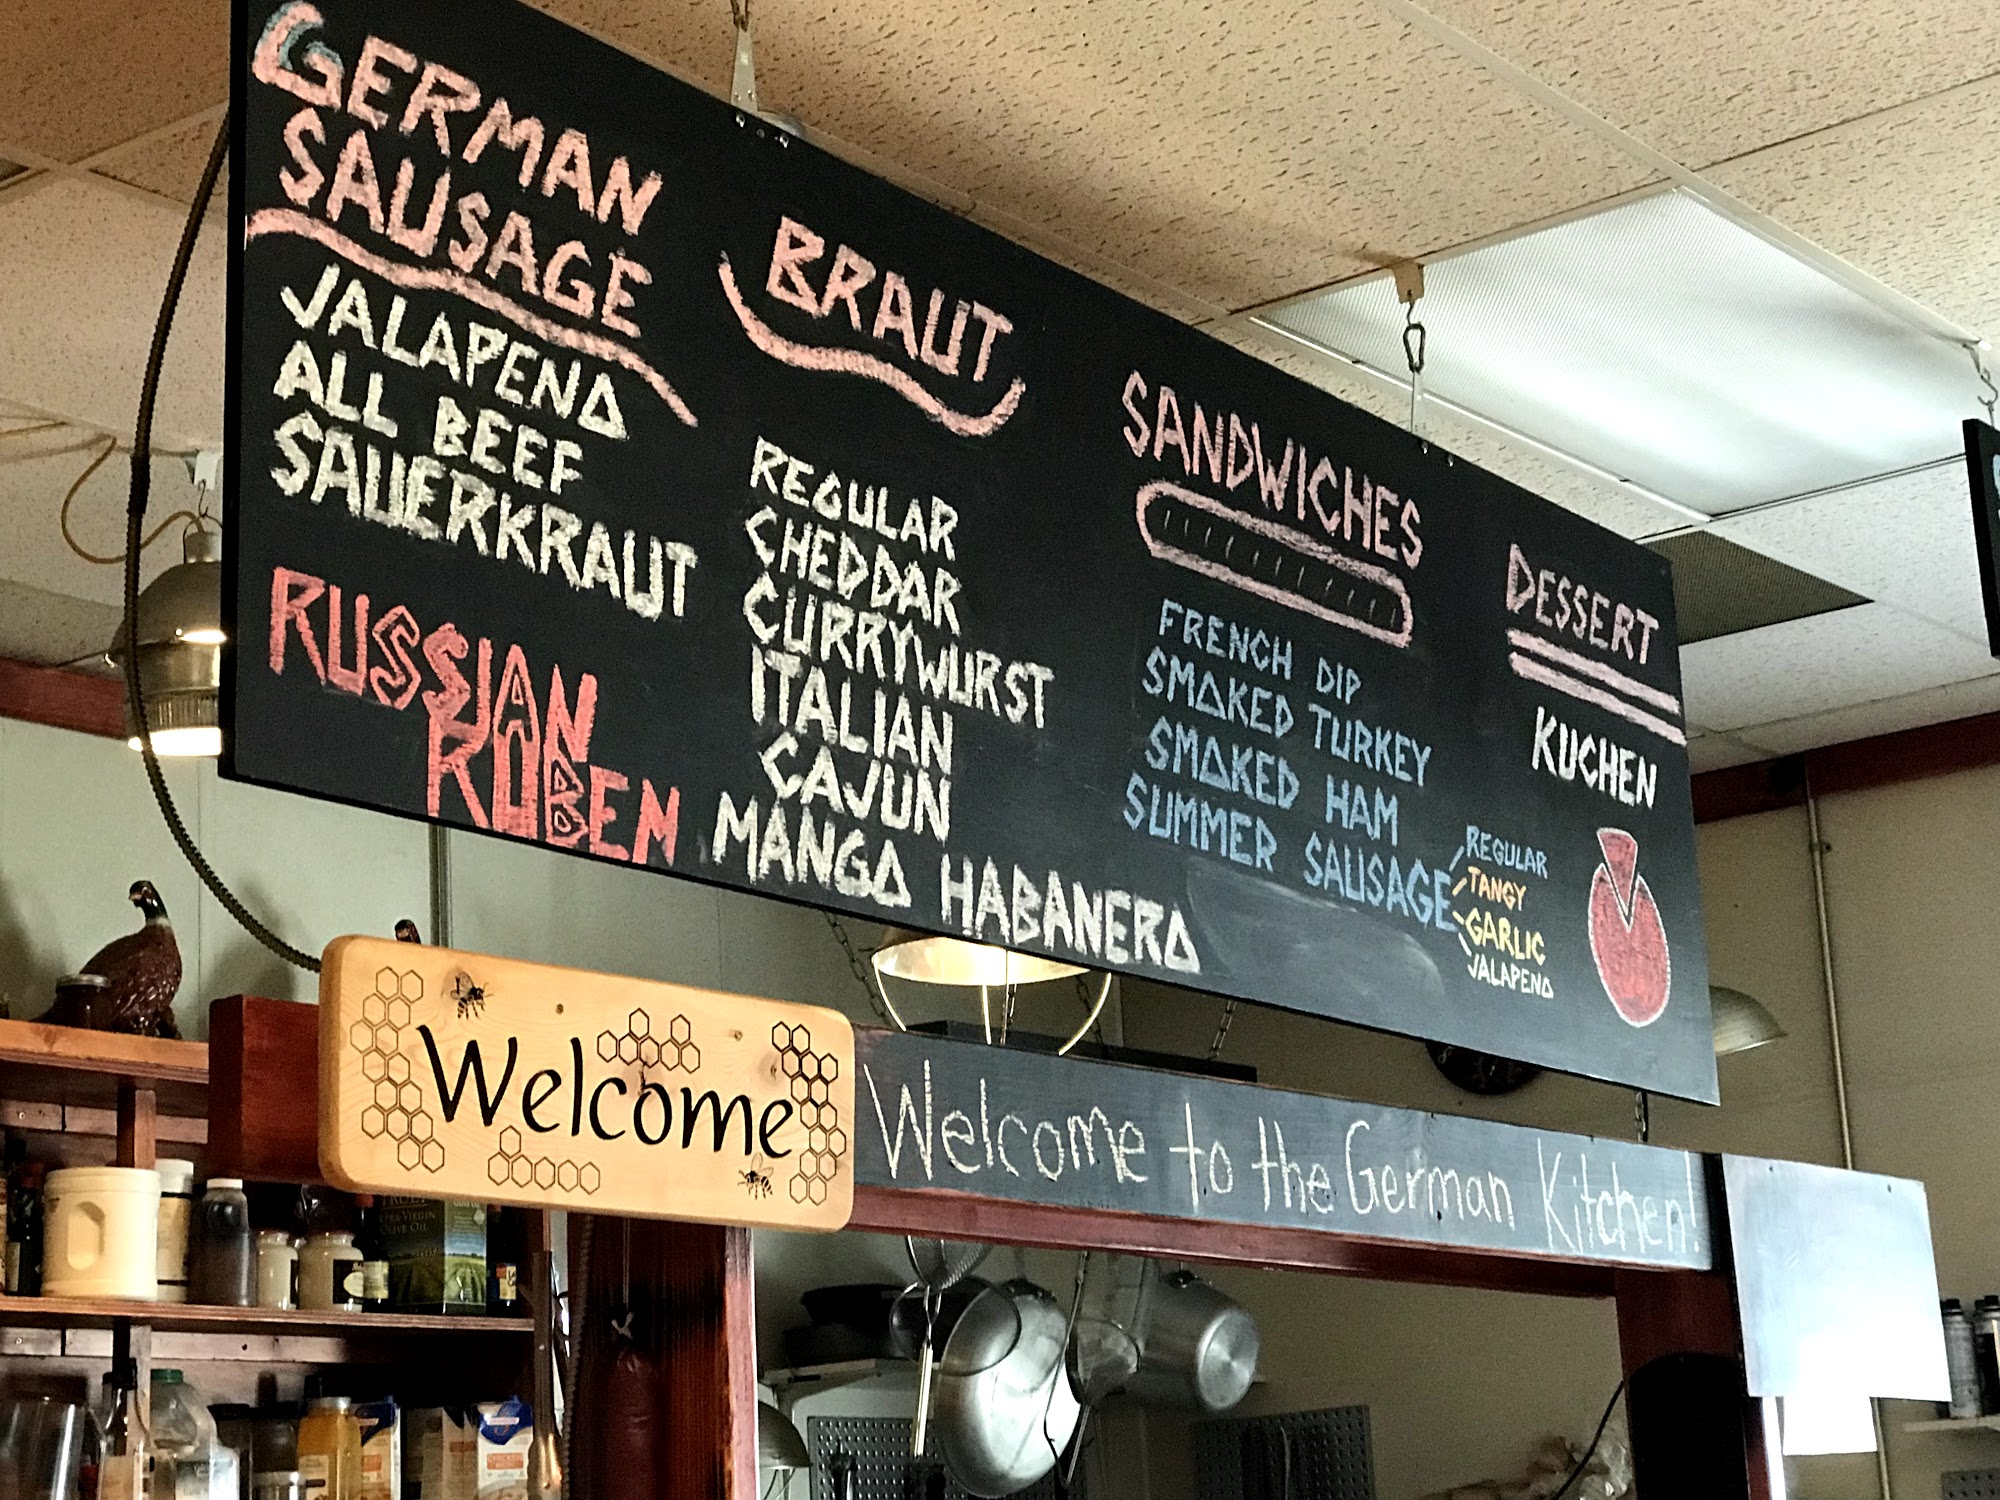 GERMAN
SAUSAGE
JALAPENO
ALL BEEF
SAUERKRAUT
RUSSIAN
RUBEN
BRAUT
REGULAR
CHEDDAR
CURRYWURST
ITALIAN
CAJUN
MANGO HABANERO
SANDWICHES
FRENCH DIP
SMOKED TURKEY
SMOKED HAM
SUMMER SAUSAGE
REGULAR
TANGY
GARLIC
JALAPENO
DESSERT
KUCHEN
Welcome
Welcome to the German Kitchen!
EXTRA VIRGIN
OLIVE OIL